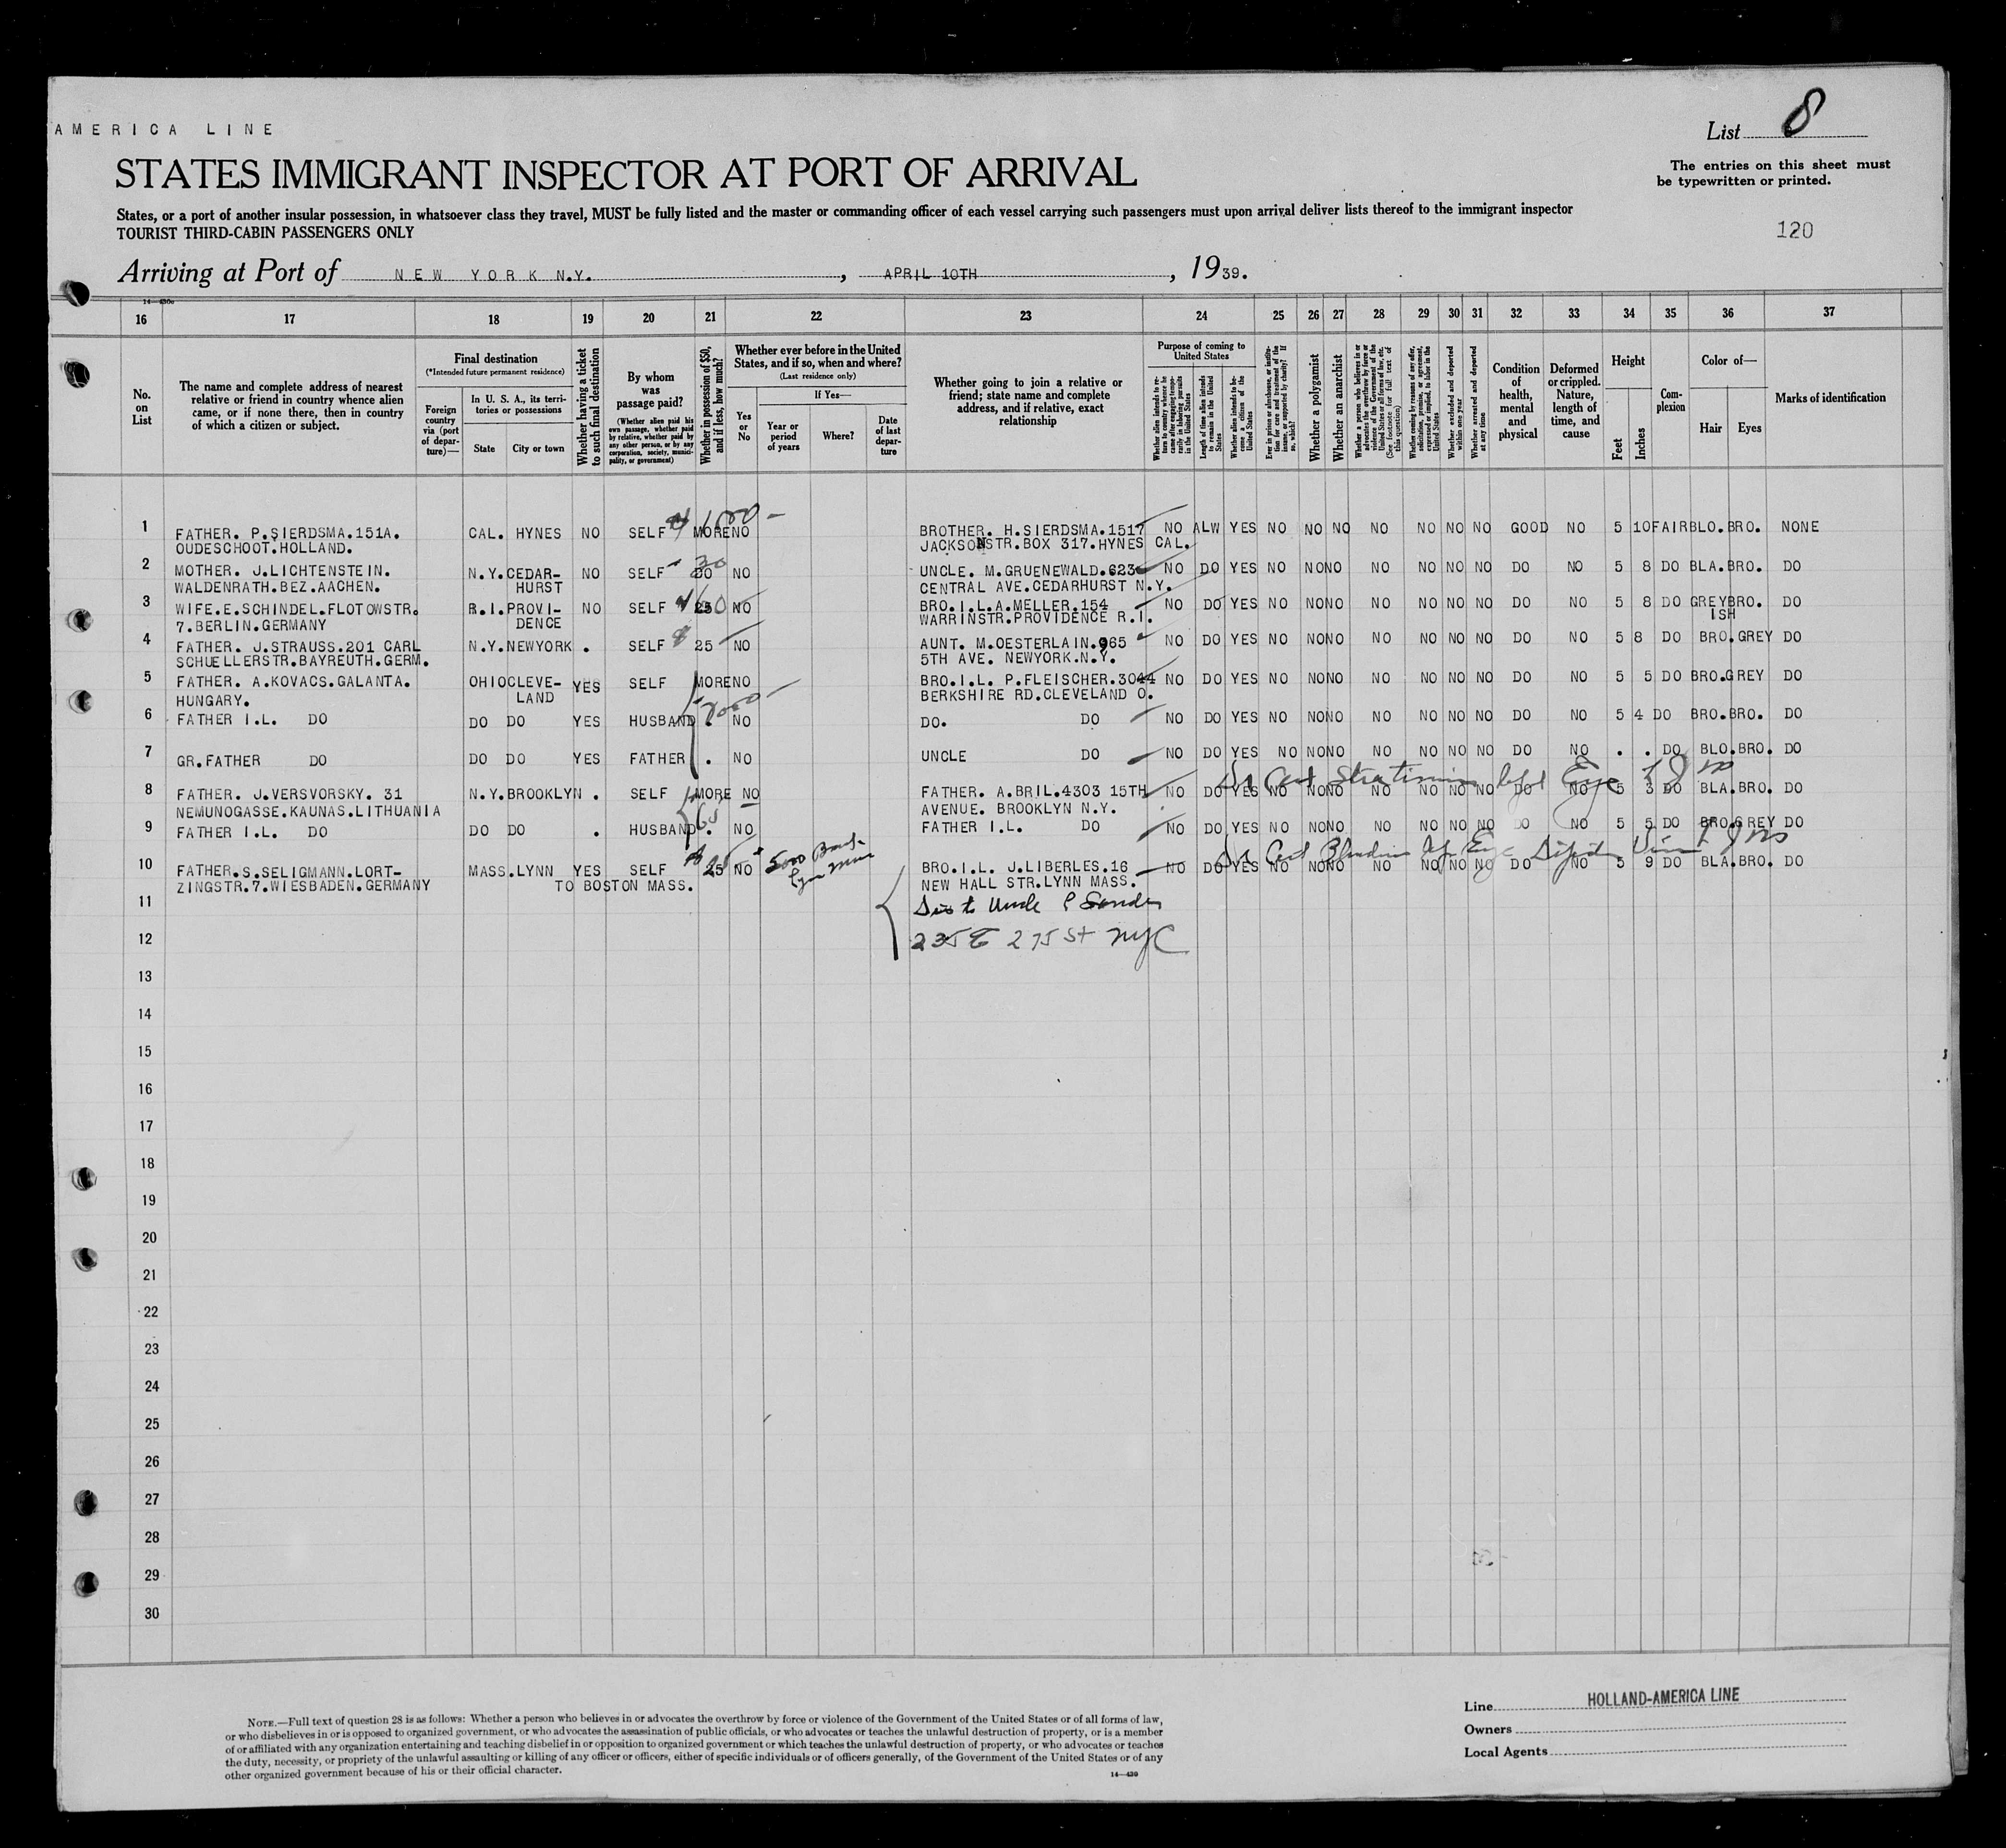 AMERICA LINE
List 8
STATES IMMIGRANT INSPECTOR AT PORT OF ARRIVAL
The entries on this sheet must
be typewritten or printed.
States, or a port of another insular possession, in whatsoever class they travel, MUST be fully listed and the master or commanding officer of each vessel carrying such passengers must upon arrival deliver lists thereof to the immigrant inspector
TOURIST THIRD-CABIN PASSENGERS ONLY
120
Arriving at Port of NEW YORK N.Y. , APRIL 10TH , 1939.
16 17 18 19 20 21 22 23 24 25 26 27 28 29 30 31 32 33 34 35 36 37
No. on List
The name and complete address of nearest relative or friend in country whence alien came, or if none there, then in country of which a citizen or subject.
Final destination
(*Intended future permanent residence)
Foreign country via (port of departure)—
In U. S. A., its territories or possessions
State City or town
Whether having a ticket to such final destination
By whom was passage paid?
(Whether alien paid his own passage, whether paid by relative, whether paid by any other person, or by any corporation, society, municipality, or government)
Whether in possession of $50, and if less, how much?
Whether ever before in the United States, and if so, when and where?
(Last residence only)
Yes or No
If Yes—
Year or period of years
Where?
Date of last departure
Whether going to join a relative or friend; state name and complete address, and if relative, exact relationship
Purpose of coming to United States
Length of time alien intends to remain in the United States
Whether alien intends to become a citizen of the United States
Whether a polygamist
Whether an anarchist
Whether excluded and deported within one year
Whether arrested and deported at any time
Condition of health, mental and physical
Deformed or crippled. Nature, length of time, and cause
Height
Feet Inches
Complexion
Color of—
Hair Eyes
Marks of identification
1 FATHER. P.SIERDSMA.151A. CAL. HYNES NO SELF MORE NO BROTHER. H.SIERDSMA.1517 NO ALW YES NO NO NO NO NO NO NO GOOD NO 5 10 FAIR BLO. BRO. NONE
OUDESCHOOT.HOLLAND. JACKSONSTR.BOX 317.HYNES CAL.
2 MOTHER. J.LICHTENSTEIN. N.Y. CEDAR- NO SELF 30 NO UNCLE. M.GRUENEWALD.623 NO DO YES NO NO NO NO NO NO NO DO NO 5 8 DO BLA. BRO. DO
WALDENRATH.BEZ.AACHEN. HURST CENTRAL AVE.CEDARHURST N.Y.
3 WIFE.E.SCHINDEL.FLOTOWSTR. R.I. PROVI- NO SELF 25 NO BRO.I.L.A.MELLER.154 NO DO YES NO NO NO NO NO NO NO DO NO 5 8 DO GREY BRO. DO
7.BERLIN.GERMANY DENCE WARRINSTR.PROVIDENCE R.I. ISH
4 FATHER. J.STRAUSS.201 CARL N.Y. NEWYORK . SELF 25 NO AUNT. M.OESTERLAIN.965 NO DO YES NO NO NO NO NO NO NO DO NO 5 8 DO BRO. GREY DO
SCHUELLERSTR.BAYREUTH.GERM. 5TH AVE. NEWYORK.N.Y.
5 FATHER. A.KOVACS.GALANTA. OHIO CLEVE- YES SELF MORE NO BRO.I.L. P.FLEISCHER.3044 NO DO YES NO NO NO NO NO NO NO DO NO 5 5 DO BRO. GREY DO
HUNGARY. LAND BERKSHIRE RD.CLEVELAND O.
6 FATHER I.L. DO DO DO YES HUSBAND . NO DO. DO NO DO YES NO NO NO NO NO NO NO DO NO 5 4 DO BRO. BRO. DO
7 GR.FATHER DO DO DO YES FATHER . NO UNCLE DO NO DO YES NO NO NO NO NO NO NO DO NO . . DO BLO. BRO. DO
8 FATHER. J.VERSVORSKY. 31 N.Y. BROOKLYN . SELF MORE NO FATHER. A.BRIL.4303 15TH NO DO YES NO NO NO NO NO NO NO DO NO 5 3 DO BLA. BRO. DO
NEMUNOGASSE.KAUNAS.LITHUANIA AVENUE. BROOKLYN N.Y.
9 FATHER I.L. DO DO DO . HUSBAND . NO FATHER I.L. DO NO DO YES NO NO NO NO NO NO NO DO NO 5 5 DO BRO. GREY DO
10 FATHER.S.SELIGMANN.LORT- MASS. LYNN YES SELF 25 NO BRO.I.L. J.LIBERLES.16 NO DO YES NO NO NO NO NO NO NO DO NO 5 9 DO BLA. BRO. DO
ZINGSTR.7.WIESBADEN.GERMANY TO BOSTON MASS. NEW HALL STR.LYNN MASS.
11 to Uncle
12 NYC
13
14
15
16
17
18
19
20
21
22
23
24
25
26
27
28
29
30
NOTE.—Full text of question 28 is as follows: Whether a person who believes in or advocates the overthrow by force or violence of the Government of the United States or of all forms of law,
or who disbelieves in or is opposed to organized government, or who advocates the assassination of public officials, or who advocates or teaches the unlawful destruction of property, or is a member
of or affiliated with any organization entertaining and teaching disbelief in or opposition to organized government or which teaches the unlawful destruction of property, or who advocates or teaches
the duty, necessity, or propriety of the unlawful assaulting or killing of any officer or officers, either of specific individuals or of officers generally, of the Government of the United States or of any
other organized government because of his or their official character.
Line HOLLAND-AMERICA LINE
Owners
Local Agents